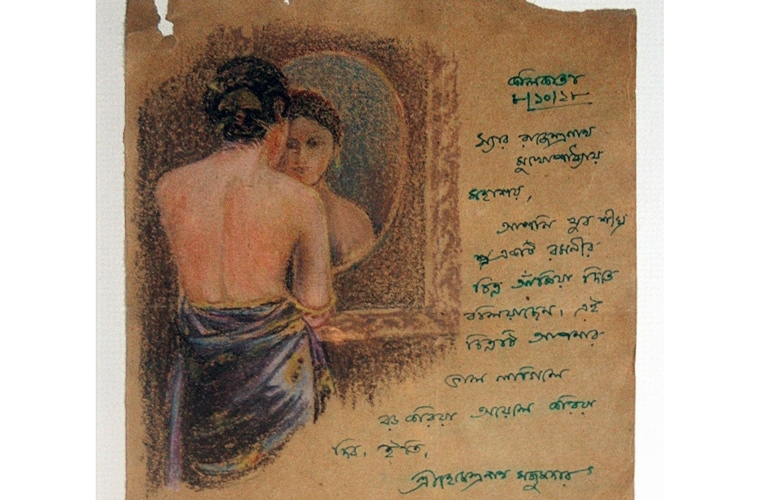 কলিকাতা
৮/১০/১৮
স্যার রাজেন্দ্রনাথ
মুখোপাধ্যায়
মহাশয়,
আপনি খুব শীঘ্র
একটি রমনীর
চিত্র আঁকিয়া দিতে
বলিয়াছেন, এই
চিত্রটি আপনার
ভাল লাগিলে
বড় করিয়া অয়েলে করিয়া
দিব, ইতি,
শ্রীহেমেন্দ্রনাথ মজুমদার